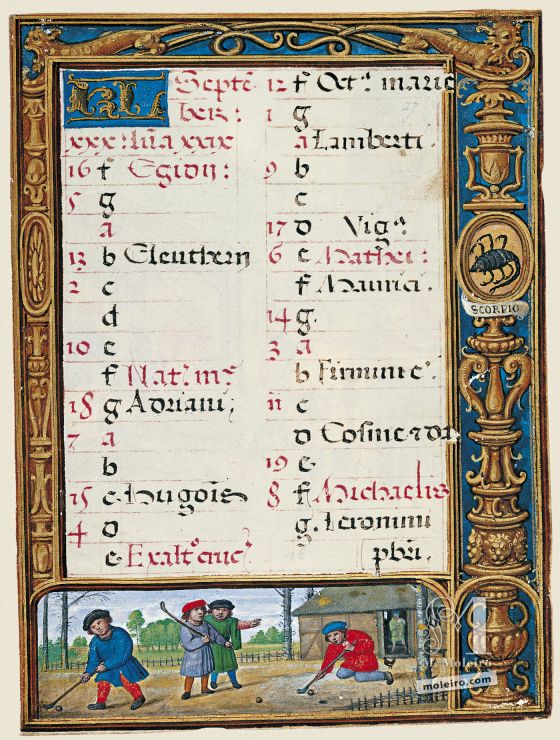 KL Septē
ber:
xxx: lūa xxix
16 f Egidii:
5 g
a
13 b Eleutherii
2 c
d
10 e
f Nat: m:
18 g Adriani;
7 a
b
15 c. Hugois
4 d
e. Exalt° cruc:
12 f Octa marie
1 g
a Lamberti.
9 b
c
17 d Vigª:
6 e Mathei:
f Mauricii.
14 g.
3 a
b Firmini e:
11 c
d Cosme & da.
19 e.
8 f Michaelis
g. Jeronimi
pbri.
SCORPIO
M. Moleiro
moleiro.com
S